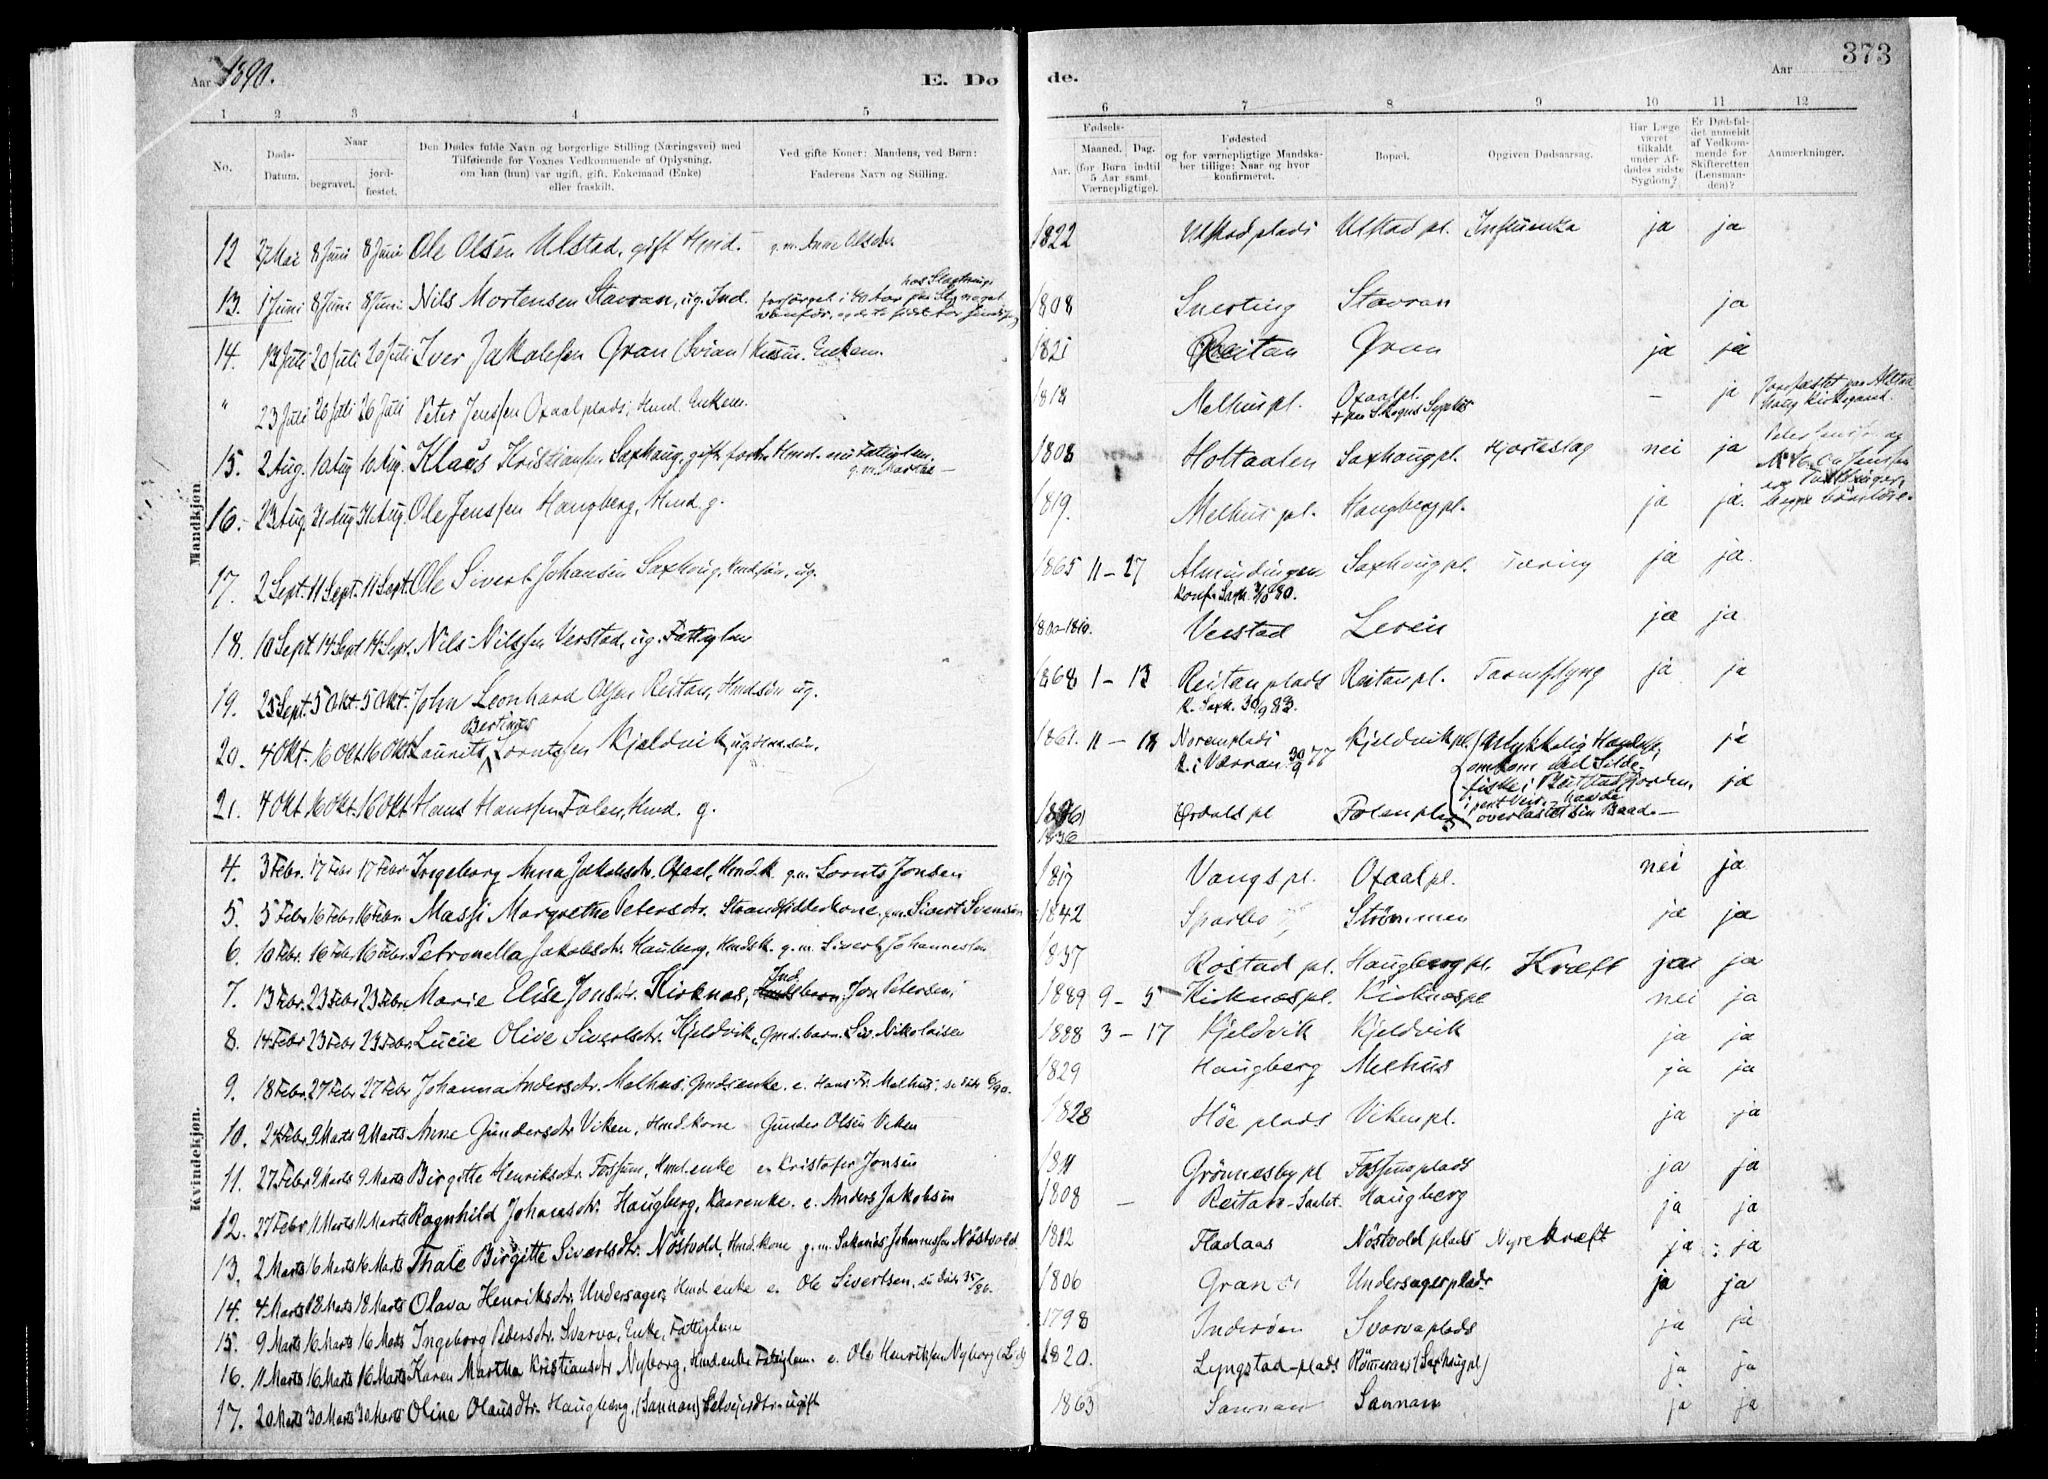 Aar 1890.
E. Dø
de.
Aar
373
1 2 3 4 5 6 7 8 9 10 11 12
No.
Døds-Datum.
Naar
begravet.
jord-fæstet.
Den Dødes fulde Navn og borgerlige Stilling (Næringsvei) med
Tilføiende for Voxnes Vedkommende af Oplysning,
om han (hun) var ugift, gift, Enkemand (Enke)
eller fraskilt.
Ved gifte Koner: Mandens, ved Børn:
Faderens Navn og Stilling.
Fødsels-
Aar.
Maaned. Dag.
(for Børn indtil
5 Aar samt
Værnepligtige).
Fødested
og for værnepligtige Mandska-
ber tillige: Naar og hvor
konfirmeret.
Bopæl.
Opgiven Dødsaarsag.
Har Læge
været
tilkaldt
under Af-
dødes sidste
Sygdom?
Er Dødsfal-
det anmeldt
af Vedkom-
mende for
Skifteretten
(Lensman-
den)?
Anmærkninger.
Mandkjøn
12 27 Mai 8 Juni 8 Juni Ole Olsen Ulstad, gift Hmd. g. m. Anne Olsdtr. 1822 Ulstadplads Ulstad pl. Influenza ja ja
13. 1 Juni 8 Juni 8 Juni Nils Mortensen Stavran, ug. Ind. 1808 Snerting Stavran ja
14. 13 Juli 20 Juli 20 Juli Iver Jakobsen Gran (Svian) Husm. Enkem. 1821 Reitan Gran ja ja
" 23 Juli 26 Juli 26 Juli Peter Jenssen Oxaalplads, Hmd. Enkem. 1818 Melhuspl. Oxaalpl. – ja Jordfæstet paa Alstad-
haug Kirkegaard.
15. 2 Aug. 10 Aug 10 Aug. Klaus Kristians. Saxhaug, gift, forh. Hmd. nu Fattiglem. g. m. Martha – 1808 Holtaalen Saxhaugpl. Hjerteslag nei ja
16. 23 Aug. 31 Aug 31 Aug. Ole Jenssen Haugberg, Hmd. g. 1819. Melhus pl. Haugberg pl. ja ja.
17. 2 Sept. 11 Sept. 11 Sept. Ole Sivert Johansen Saxhaug, Hmdsøn, ug. 1865 11 – 27 Almindingen Saxhaug pl. Tæring ja ja.
18. 10 Sept. 14 Sept 14 Sept. Nils Nilssen Verstad, ug. Fattiglem 1800–1810. Verstad Lerein ja ja
19. 25 Sept. 5 Okt. 5 Okt. John Leonhard Olsen Reitan, Hmdsøn ug. 1868 1 – 13 Reitanplads Reitanpl. Tarmslyng ja ja
K. Saxh. 30/9 83.
Bertines
20. 4 Okt. 16 Okt 16 Okt Laurits Lorntsen Kjeldvik, ug. Hmdsøn. 1861. 11 – 18 Noremplads Kjeldvikpl. ja
K. i Værran 30/9 77
omkom ved Silde-
fiske i Beitstadfjorden,
i pent Veir, havde
overlastet sin Baad. –
21. 4 Okt 16 Okt. 16 Okt Hans Hanssen Folen, Hmd. g. 1836 Ørdals pl Folenplads ja
Kvindekjøn.
4. 3 Febr. 17 Febr 17 Febr. Ingeborg Anna Jakobsdtr. Oxaal, Hmd.k. g. m. Lornts Jonsen 1817 Vangs pl. Oxaal pl. nei ja
5. 5 Febr 16 Febr 16 Febr. Massi Margrethe Petersdtr. Strandsidderkone, g. m. Sivert Svensen 1842 Sparbo Strömmen ja ja
6. 10 Febr. 16 Febr 16 Febr. Petronella Jakobsdtr. Hauberg, Hmdsk. g. m. Sivert Johannessen 1837 Rostad pl. Haugberg pl. Kræft ja ja
7. 13 Febr. 23 Febr 23 Febr. Marie Elise Jonsdtr. Kirknæs, Ind. barn. Jon Petersen 1889 9 – 5 Kirknæspl. Kirknæspl nei ja
8. 14 Febr 23 Febr 23 Febr. Lucie Olive Sivertsdtr. Kjeldvik, Gmd. barn. Siv. Nikolaisen 1888 3 – 17 Kjeldvik Kjeldvik ja ja
9. 18 Febr. 27 Febr 27 Febr Johanna Andersdtr. Melhus, Gmdsenke. e. Hans Fr. Melhus, se Døde 6/90. 1829 Haugberg Melhus ja ja
10. 24 Febr. 9 Marts 9 Marts Anne Gundersdtr Viken, Hmd.kone Gunder Olsen Viken 1828 Höe plads Vikenpl. ja ja
11. 27 Febr. 9 Marts 9 Marts Birgitte Henriksdtr. Fossum, Hmd.enke e. Kristofer Jonsen 1811 Grönnesby pl Fossumplads ja ja
12. 27 Febr 11 Marts 11 Marts Ragnhild Johansdtr. Haugberg, Kaarenke. e. Anders Jakobsen 1808 – Reitan- Haugberg ja ja
13. 2 Marts 16 Marts 16 Marts Thale Birgitte Sivertsdtr. Nöstvold, Hmd.kone g. m. Sakarias Johannessen Nöstvold. 1812 Fladaas Nöstvold plads Nyrekræft ja ja
14. 4 Marts 18 Marts 18 Marts Olava Henriksdtr. Undersager, Hmd enke e. Ole Sivertsen, se Døde 35/86. 1806 Gran Undersagerplads ja ja
15. 9 Marts 16 Marts 16 Marts Ingeborg Pedersdtr. Svarva, Enke, Fattiglem 1798 Inderøen Svarvaplads ja ja
16. 11 Marts 16 Marts 16 Marts Karen Martha Kristiansdtr Nyborg, Hmd.enke Fattiglem. e. Ole Henriksen Nyborg 1820. Lyngstad-plads Römmenaes (Saxhaugpl) ja ja
17. 20 Marts 30 Marts 30 Marts Oline Olausdtr. Haugberg, (Sannan) Selveierdtr. ugift 1863 Sannan Sannan ja ja